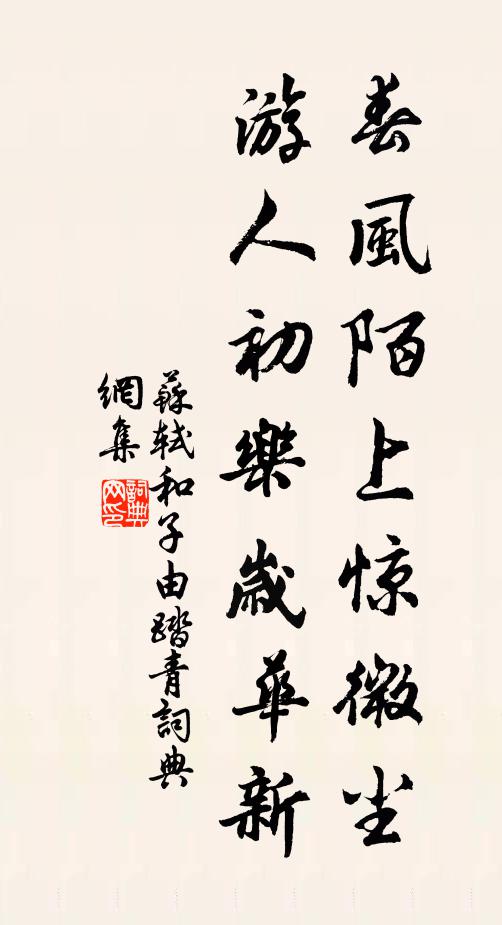 春風陌上惊微尘
游人初樂歲華新
蘇軾和子由踏青詞典
網集
詞典
网印